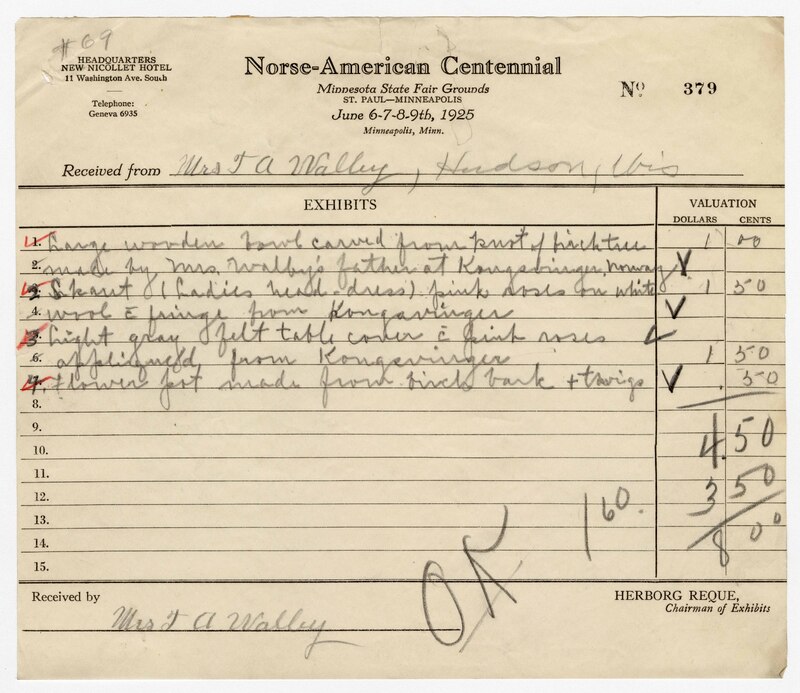 #69
HEADQUARTERS
NEW NICOLLET HOTEL
11 Washington Ave. South
Telephone:
Geneva 6935
Norse-American Centennial
Minnesota State Fair Grounds
ST. PAUL—MINNEAPOLIS
June 6-7-8-9th, 1925
Minneapolis, Minn.
No 379
Received from Mrs T A Walby, Hudson, Wis
EXHIBITS
VALUATION
DOLLARS CENTS
1. Large wooden bowl carved from knot of birch tree 1 00
2. made by Mrs. Walby's father at Kongsvinger, Norway ✓
2 Skaut (Ladies head-dress) pink roses on white 1 50
4. wool c̄ fringe from Kongsvinger ✓
3 Light gray felt table cover c̄ pink roses ✓
6. appliqued from Kongsvinger 1 50
4. Flower pot made from birch bark + twigs ✓ .50
8.
9. 4.50
10.
11. 3 50
12. 1 60.
13. 8 00
14.
15.
OK
Received by
Mrs T A Walby
HERBORG REQUE,
Chairman of Exhibits